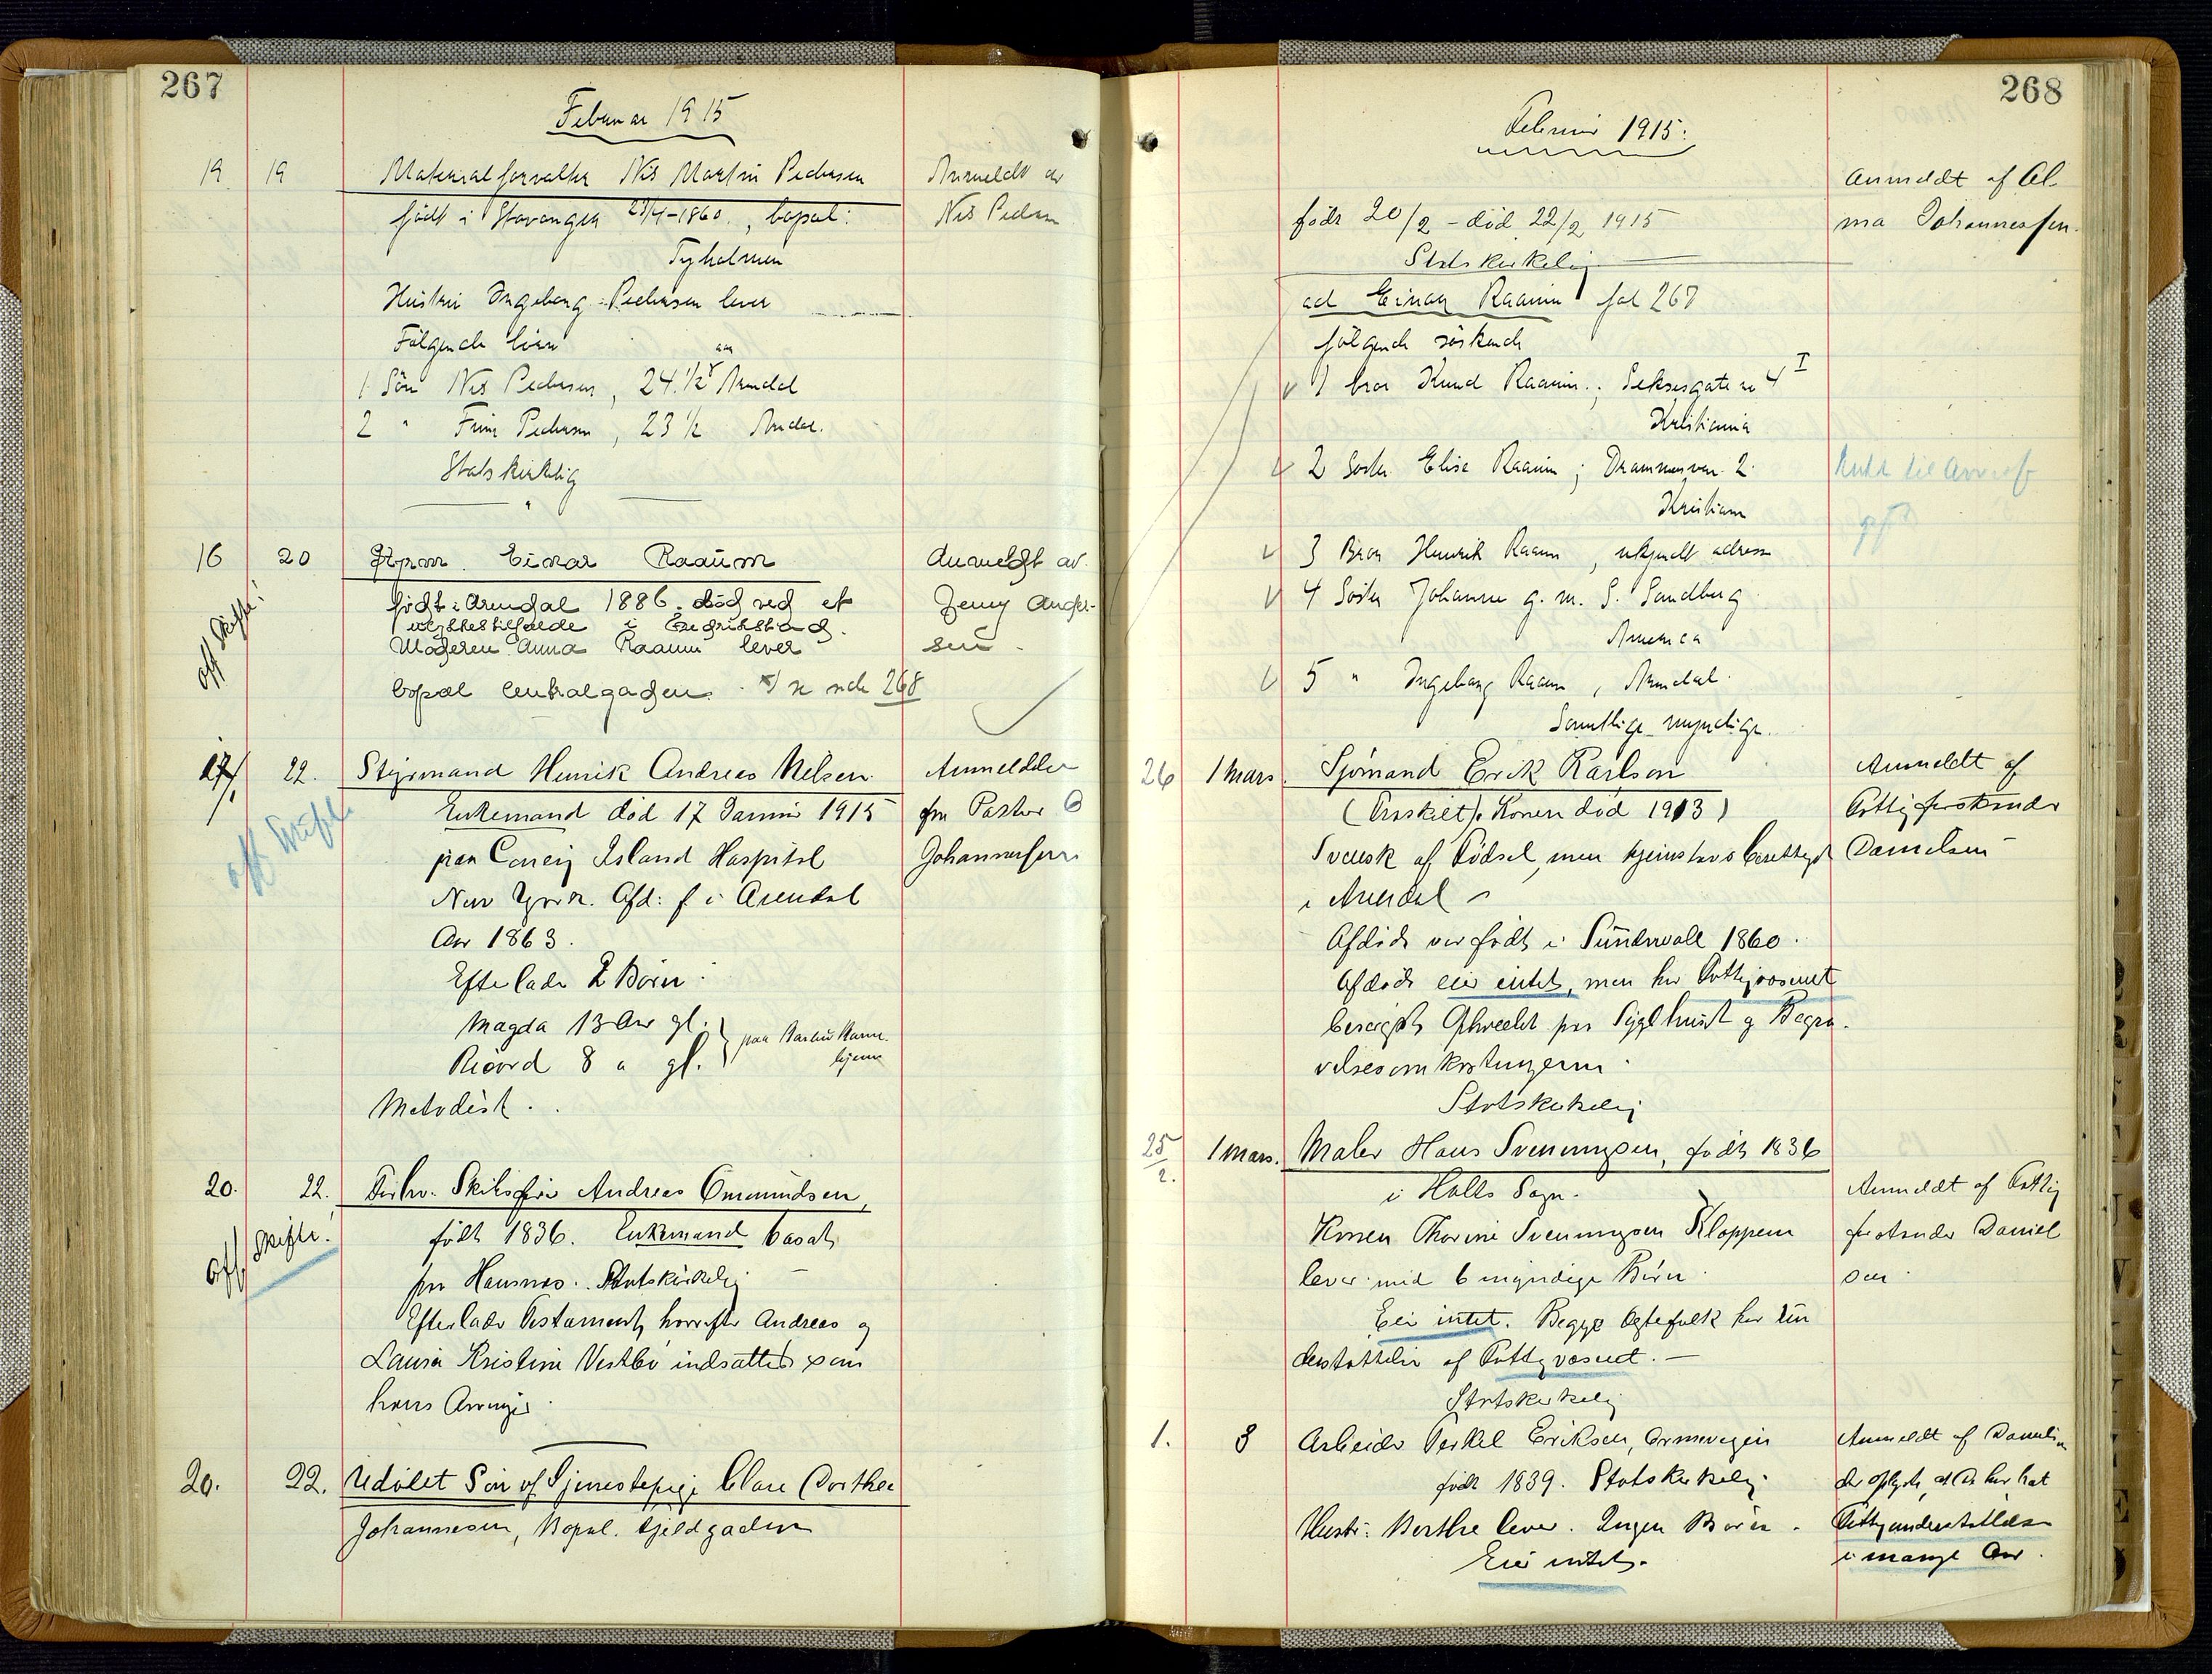 267
Februar 1915
19 19 Materialforvalter Nis Martin Pedersen Anmeldt av
født i Stavanger 23/4-1860, bopæl: Nis Pedersen
Tyholmen
Hustru Ingeborg Pedersen lever
Følgende børn
aar
1 Søn Nis Pedersen, 24 1/2 Arendal
2 " Finn Pedersen, 23 1/2 Arendal.
Statskirkelig
16 20 Einar Raaum Anmeldt av
off Skifte!
født i Arendal 1886. død ved et Jenny Ander-
ulykkestilfælde i Fredrikstad. sen.
Moderen Anna Raaum lever
bopæl Centralgaden. se side 268
17/1 22. Styrmand Henrik Andreas Nelsen Anmeldelse
off Skifte
Enkemand død 17 Januar 1915 fra Pastor O
paa Coney Island Hospital Johannessen
New York. Afd: f i Arendal
Aar 1863.
Efterlader 2 Børn:
Magda 13 Aar gl. paa Barbu Barne-
Ricord 8 a gl. hjem
Metodist.
20. 22. Skibsfører Andreas Omundsen,
off Skifte!
født 1836. Enkemand bosat
paa Hausnæs. Statskirkelig
Efterlader Testament, hvorefter Andreas og
Laura Kristine Vestbø indsattes som
hans Arvinger.
20. 22. Udøbt Søn af Tjenestepige Clara Dorthea
Johannessen, Bopæl. Gjeldgaden
268
Februar 1915.
Anmeldt af Al-
født 20/2 - død 22/2 1915 ma Johannessen.
Statskirkelig
ad Einar Raaum fol 267
følgende søskende
1 bror Knud Raaum; gate no 4 I
Kristiania
2 Søster Elise Raaum; Drammensvn. 2.
Kristiania
3 Bror Henrik Raaum, ukjendt adresse
4 Søster Johanne g. m. S. Sandberg
America
5 " Ingeborg Raaum, Arendal.
Samtlige myndige.
26 1 mars Sjømand Erik Karlson Anmeldt af
(Fraskilt). Konen død 1913) Fattigforstander
Svensk af Fødsel, men hjemstavnsberettiget Danielsen
i Arendal
Afdøde var født i Sundsvall 1860.
Afdøde eier intet, men har Fattigvæsenet
besørget Ophold paa Sygehuset og Begra-
velsesomkostningerne.
Statskirkelig
25/2. 1 mars. Maler Hans Svenningsen, født 1836
i Holts Sogn. Anmeldt af Fattig
Konen Thorine Svenningsen Kloppene forstander Daniel
lever med 6 myndige Børn. sen.
Eier intet. Begge Ægtefolk har un
derstøttelse af Fattigvæsenet.
Statskirkelig
1. 3 Arbeider Terkel Eriksen, Anmeldt af Danielsen
født 1839. Statskirkelig. der oplyste, at de har hat
Hustr: Berthe lever. Ingen Børn. Fattigunderstøttelse
Eier intet. i mange Aar.